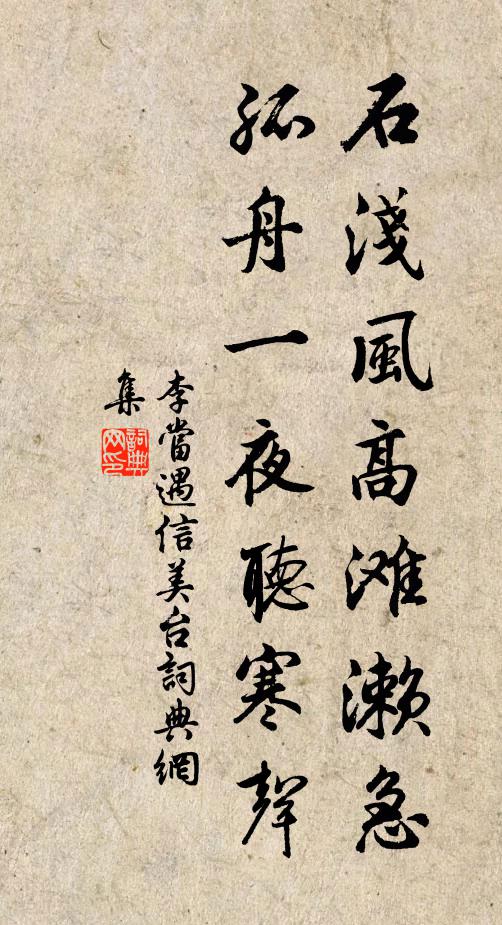 石淺風高滩濑急
孤舟一夜聽寒聲
李當遇信美台詞典網
集
詞典
网印